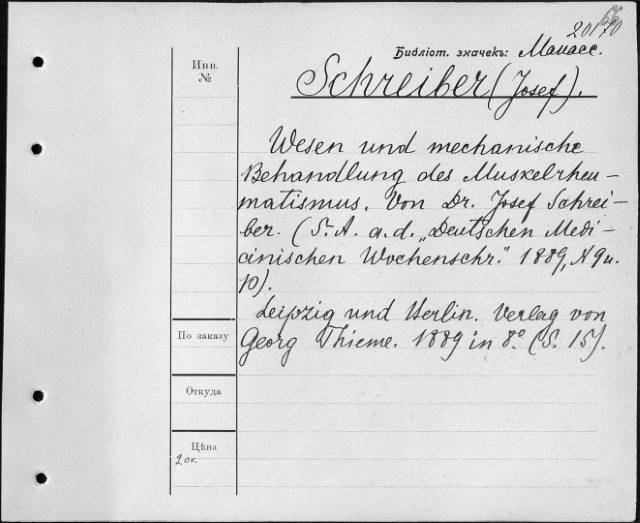 20170
Библіот. значекъ: Манасс.
Инв.
№
Schreiber (Josef).
Wesen und mechanische
Behandlung des Muskelrheu-
matismus. Von Dr. Josef Schrei-
ber. (S. A. a. d. „Deutschen Medi-
cinischen Wochenschr." 1889, № 9 u.
10).
Leipzig und Berlin. Verlag von
Georg Thieme. 1889 in 8° (S. 15).
По заказу
Откуда
Цѣна